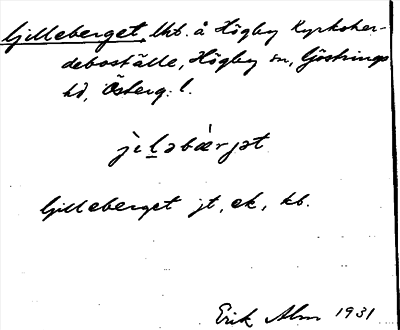 Gilleberget, lht. å Högby kyrkoher-
deboställe, Högby sn, Göstrings
hd, Österg. l.
jìl̠əbǽrjət
Gilleberget jt, ek, kb.
Erik Alm 1931